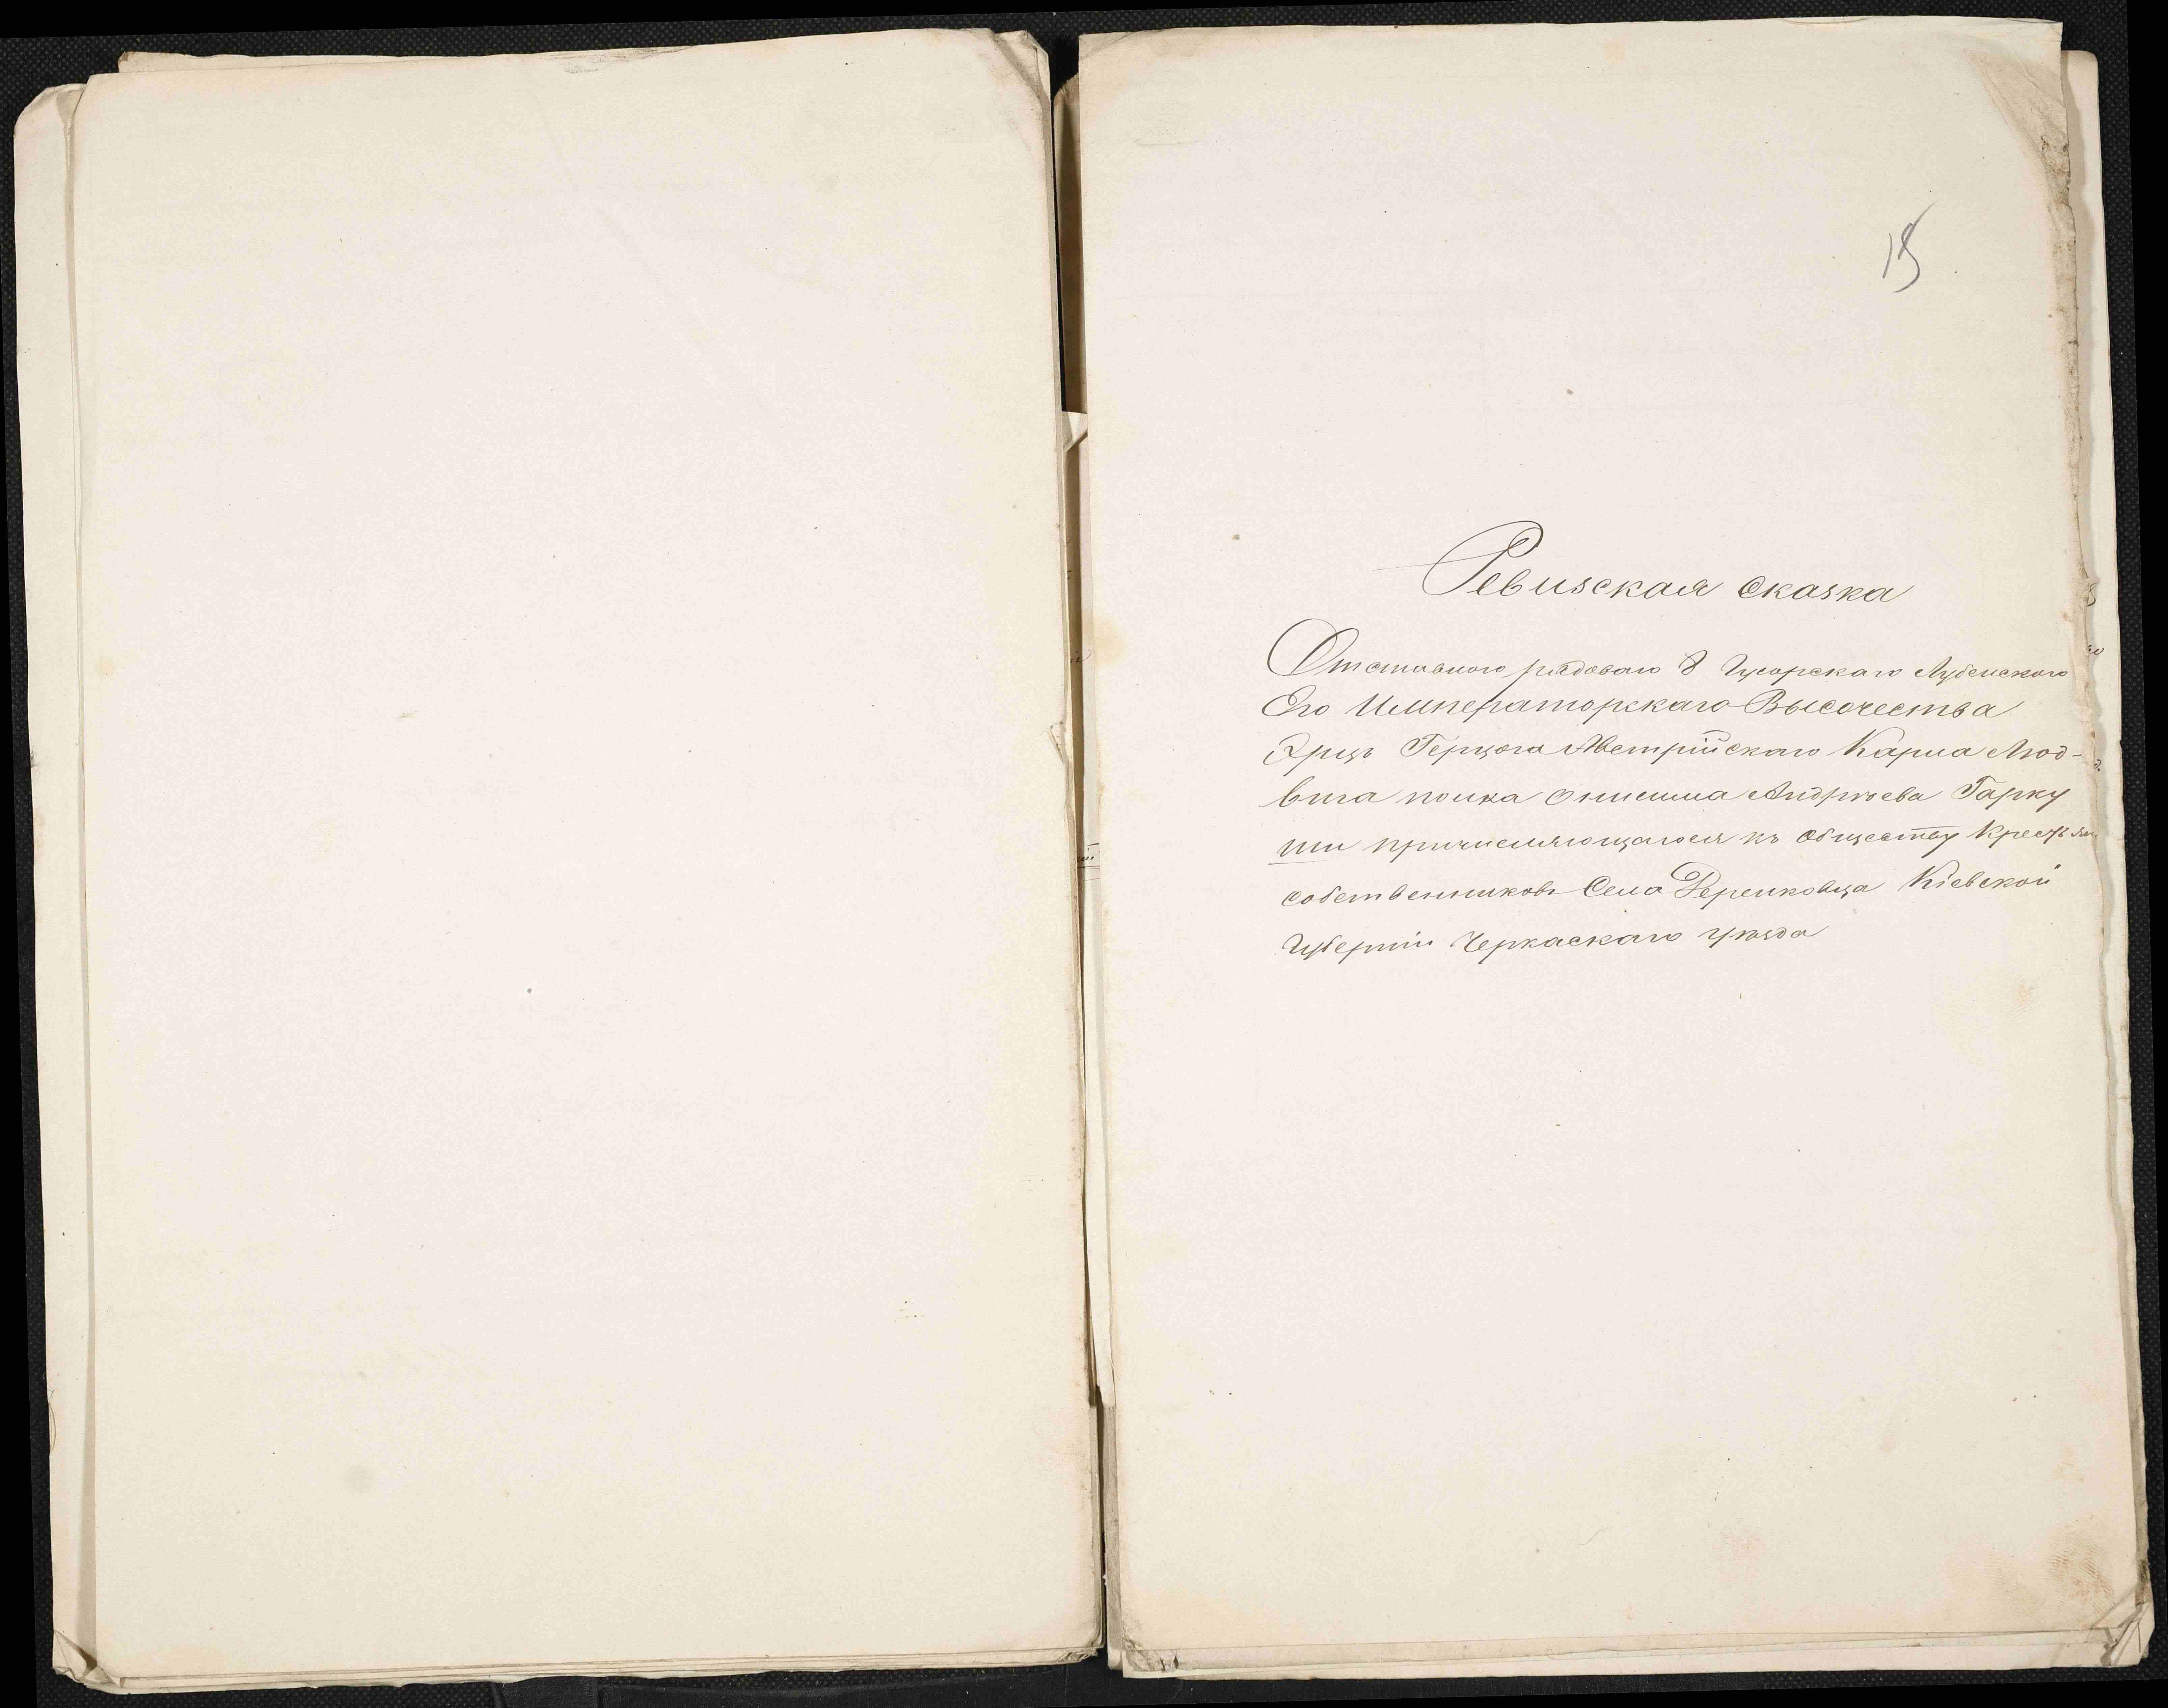 15
Ревизская сказка
Отставного рядоваго 8 Гусарскаго Лубенскаго
Его Императорскаго Высочества
Эрцъ Герцога Австрійскаго Карла Люд-
вига полка Онисима Андрѣева Гарку
ши причисляющагося къ обществу крестьян
собственниковъ Села Деренковца Кіевской
Губерніи Черкаскаго уѣзда